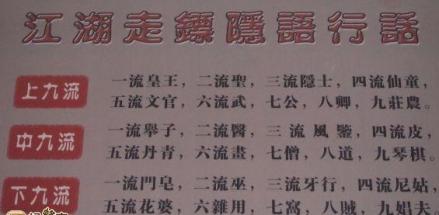 江湖走鏢隱語行話
上九流
一流皇王，二流聖，三流隱士，四流仙童，
五流文官，六流武，七公，八卿，九莊農。
中九流
一流舉子，二流醫，三流風鑒，四流皮，
五流丹青，六流畫，七僧，八道，九琴棋。
下九流
一流門皂，二流巫，三流牙行，四流尼姑，
五流花婆，六雜用，七窩，八賊，九娼夫